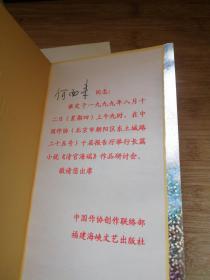 何西来 同志:
兹定于一九九九年八月十
二日(星期四)上午九时,在中
国作协(北京市朝阳区东土城路
二十五号)十层报告厅举行长篇
小说《清官海瑞》作品研讨会。
敬请您出席
中国作协创作联络部
福建海峡文艺出版社